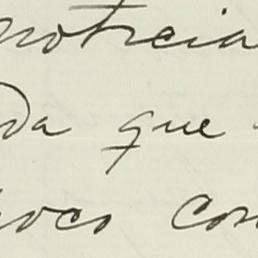 noticia
da que
poco con